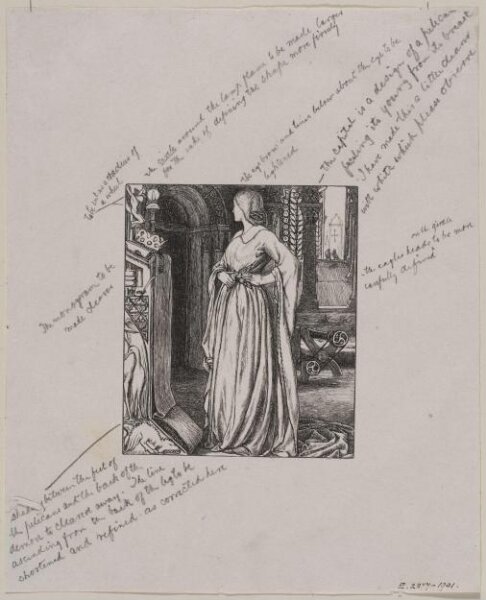 the circle around the lamp flame to be made larger
for the sake of defining the shape more firmly
the eyebrow and lines below about the eye to be
lightened
The capital is a design of a pelican
feeding its young from its breast
I have made this a little clearer
with white which please observe
the
shadow of
The monogram to be
made clearer
with
the eagles heads to be more
carefully defined
between the feet of
the pelicans and the back of the
demon to cleared away. The line
ascending from the back of the to be
shortened and refined as corrected here
E. 2977-1901.